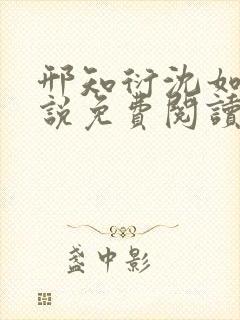 邢知衍沈如
說免費閱讀
盞中影